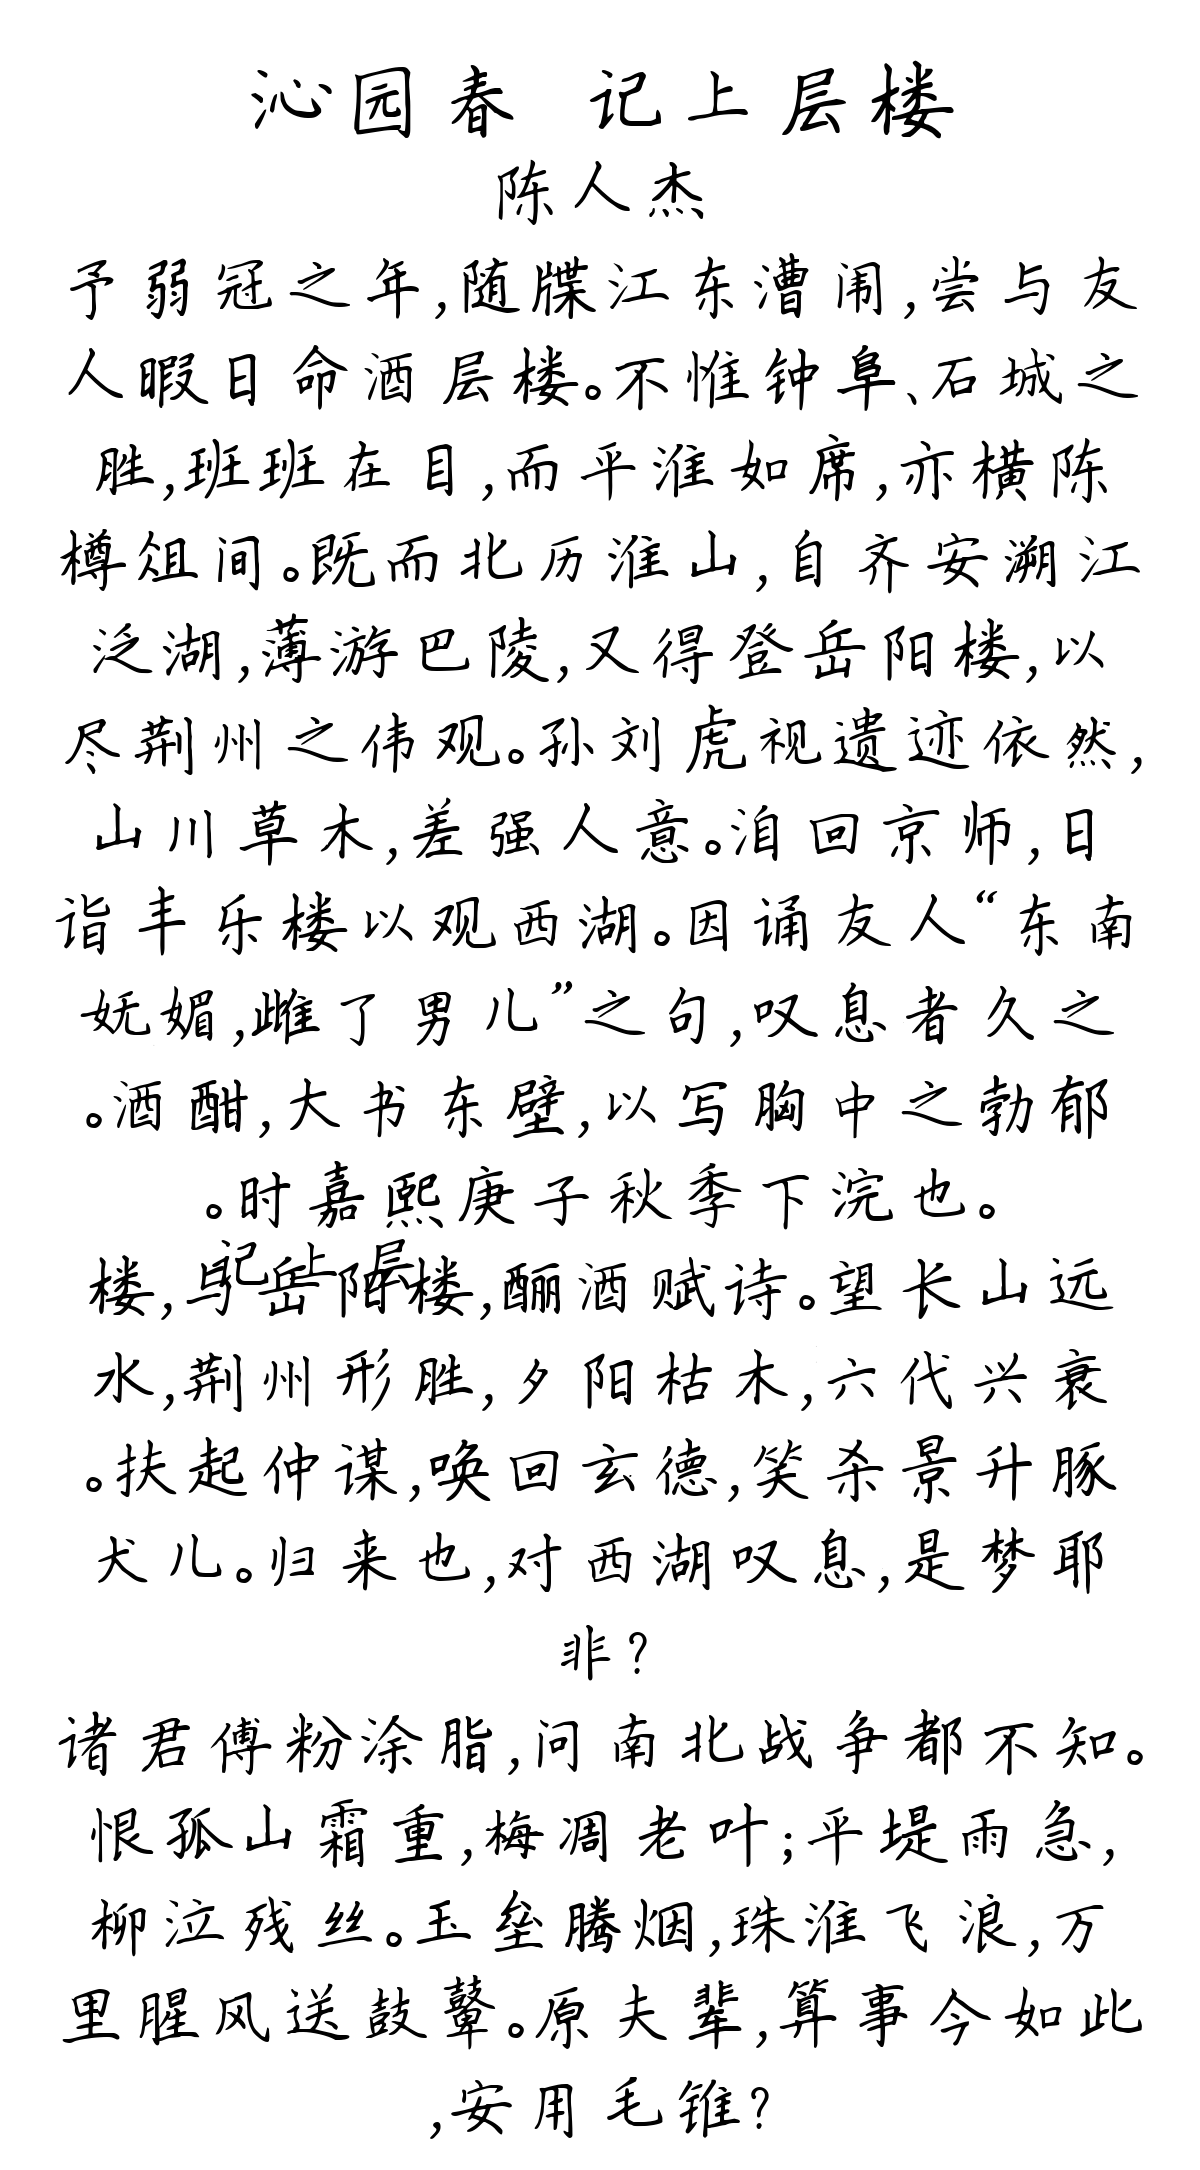 沁园春 记上层楼
陈人杰
予弱冠之年,随牒江东漕闱,尝与友
人暇日命酒层楼。不惟钟阜、石城之
胜,班班在目,而平淮如席,亦横陈
樽俎间。既而北历淮山,自齐安溯江
泛湖,薄游巴陵,又得登岳阳楼,以
尽荆州之伟观。孙刘虎视遗迹依然,
山川草木,差强人意。洎回京师,日
诣丰乐楼以观西湖。因诵友人“东南
妩媚,雌了男儿”之句,叹息者久之
。酒酣,大书东壁,以写胸中之勃郁
。时嘉熙庚子秋季下浣也。
记上层
楼,与岳阳楼,酾酒赋诗。望长山远
水,荆州形胜,夕阳枯木,六代兴衰
。扶起仲谋,唤回玄德,笑杀景升豚
犬儿。归来也,对西湖叹息,是梦耶
非?
诸君傅粉涂脂,问南北战争都不知。
恨孤山霜重,梅凋老叶;平堤雨急,
柳泣残丝。玉垒腾烟,珠淮飞浪,万
里腥风送鼓鼙。原夫辈,算事今如此
,安用毛锥?